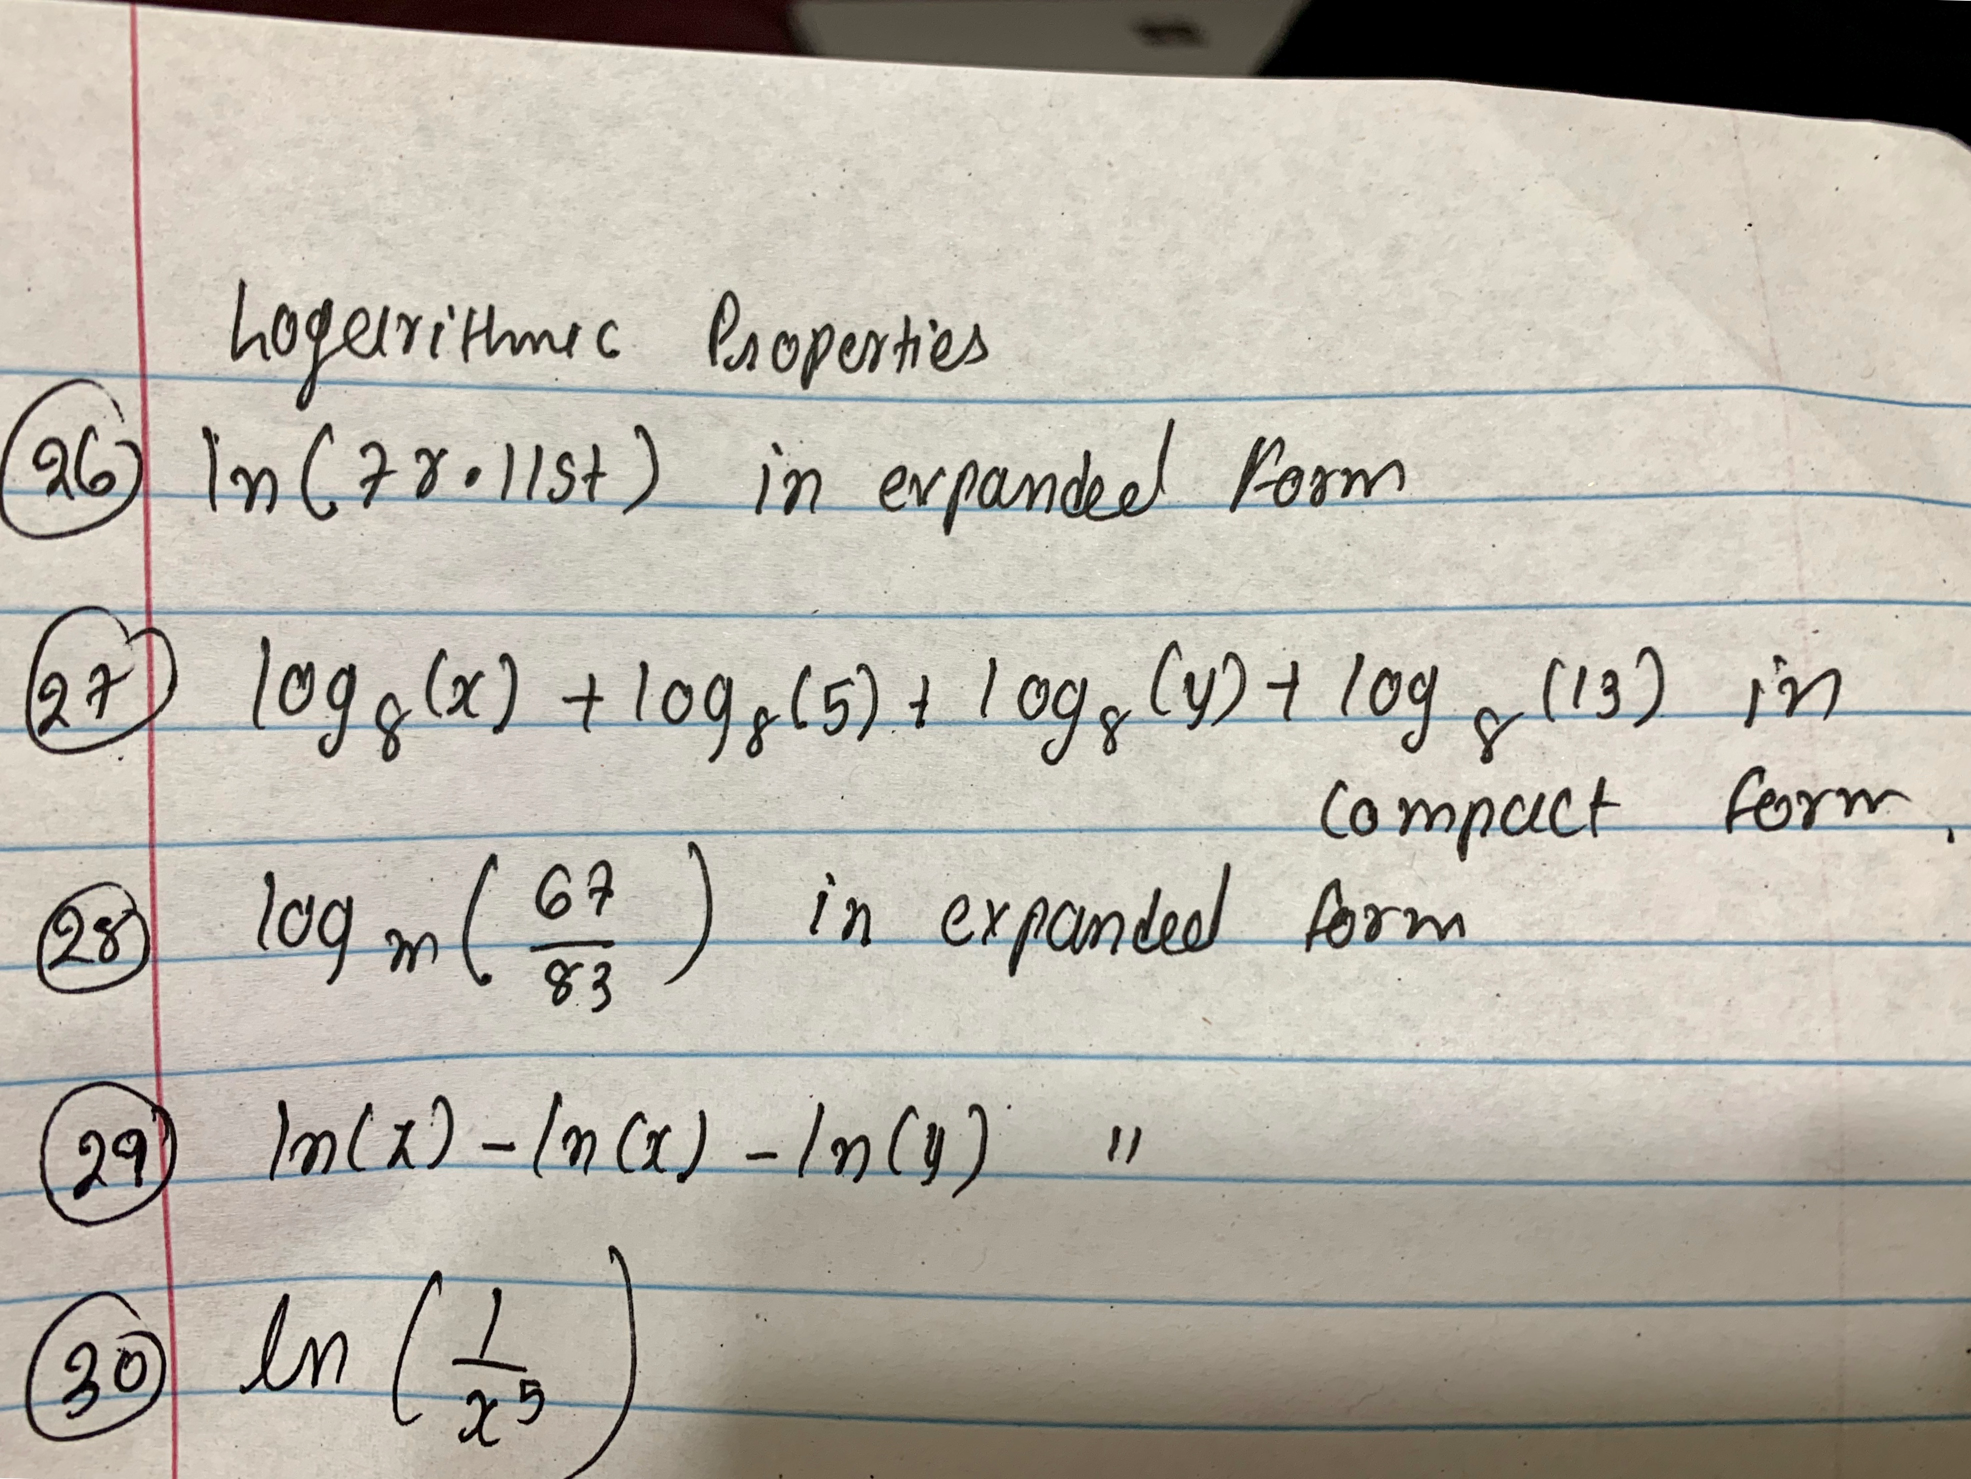 Logarithmic Properties
26 ln(7r•11st) in expanded Form
27 log₈(x) + log₈(5) + log₈(y) + log₈(13) in
compact form.
28 logₘ(67/83) in expanded form
29 ln(z) - ln(x) - ln(y) "
30 ln(1/x⁵)